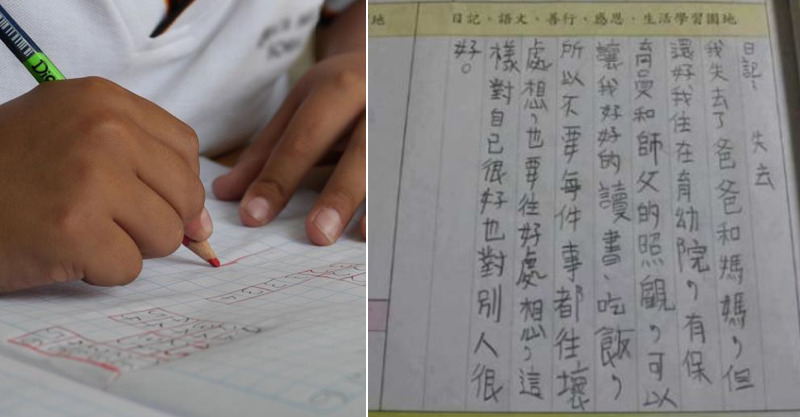 Di
地 日記、語文、善行、感恩、生活學習園地
日記： 失去
我失去了爸爸和媽媽，但
還好我住在育幼院，有保
育員和師父的照顧，可以
讓我好好的讀書、吃飯，
所以不要每件事都往壞
處想，也要往好處想，這
樣對自己很好也對別人很
好。